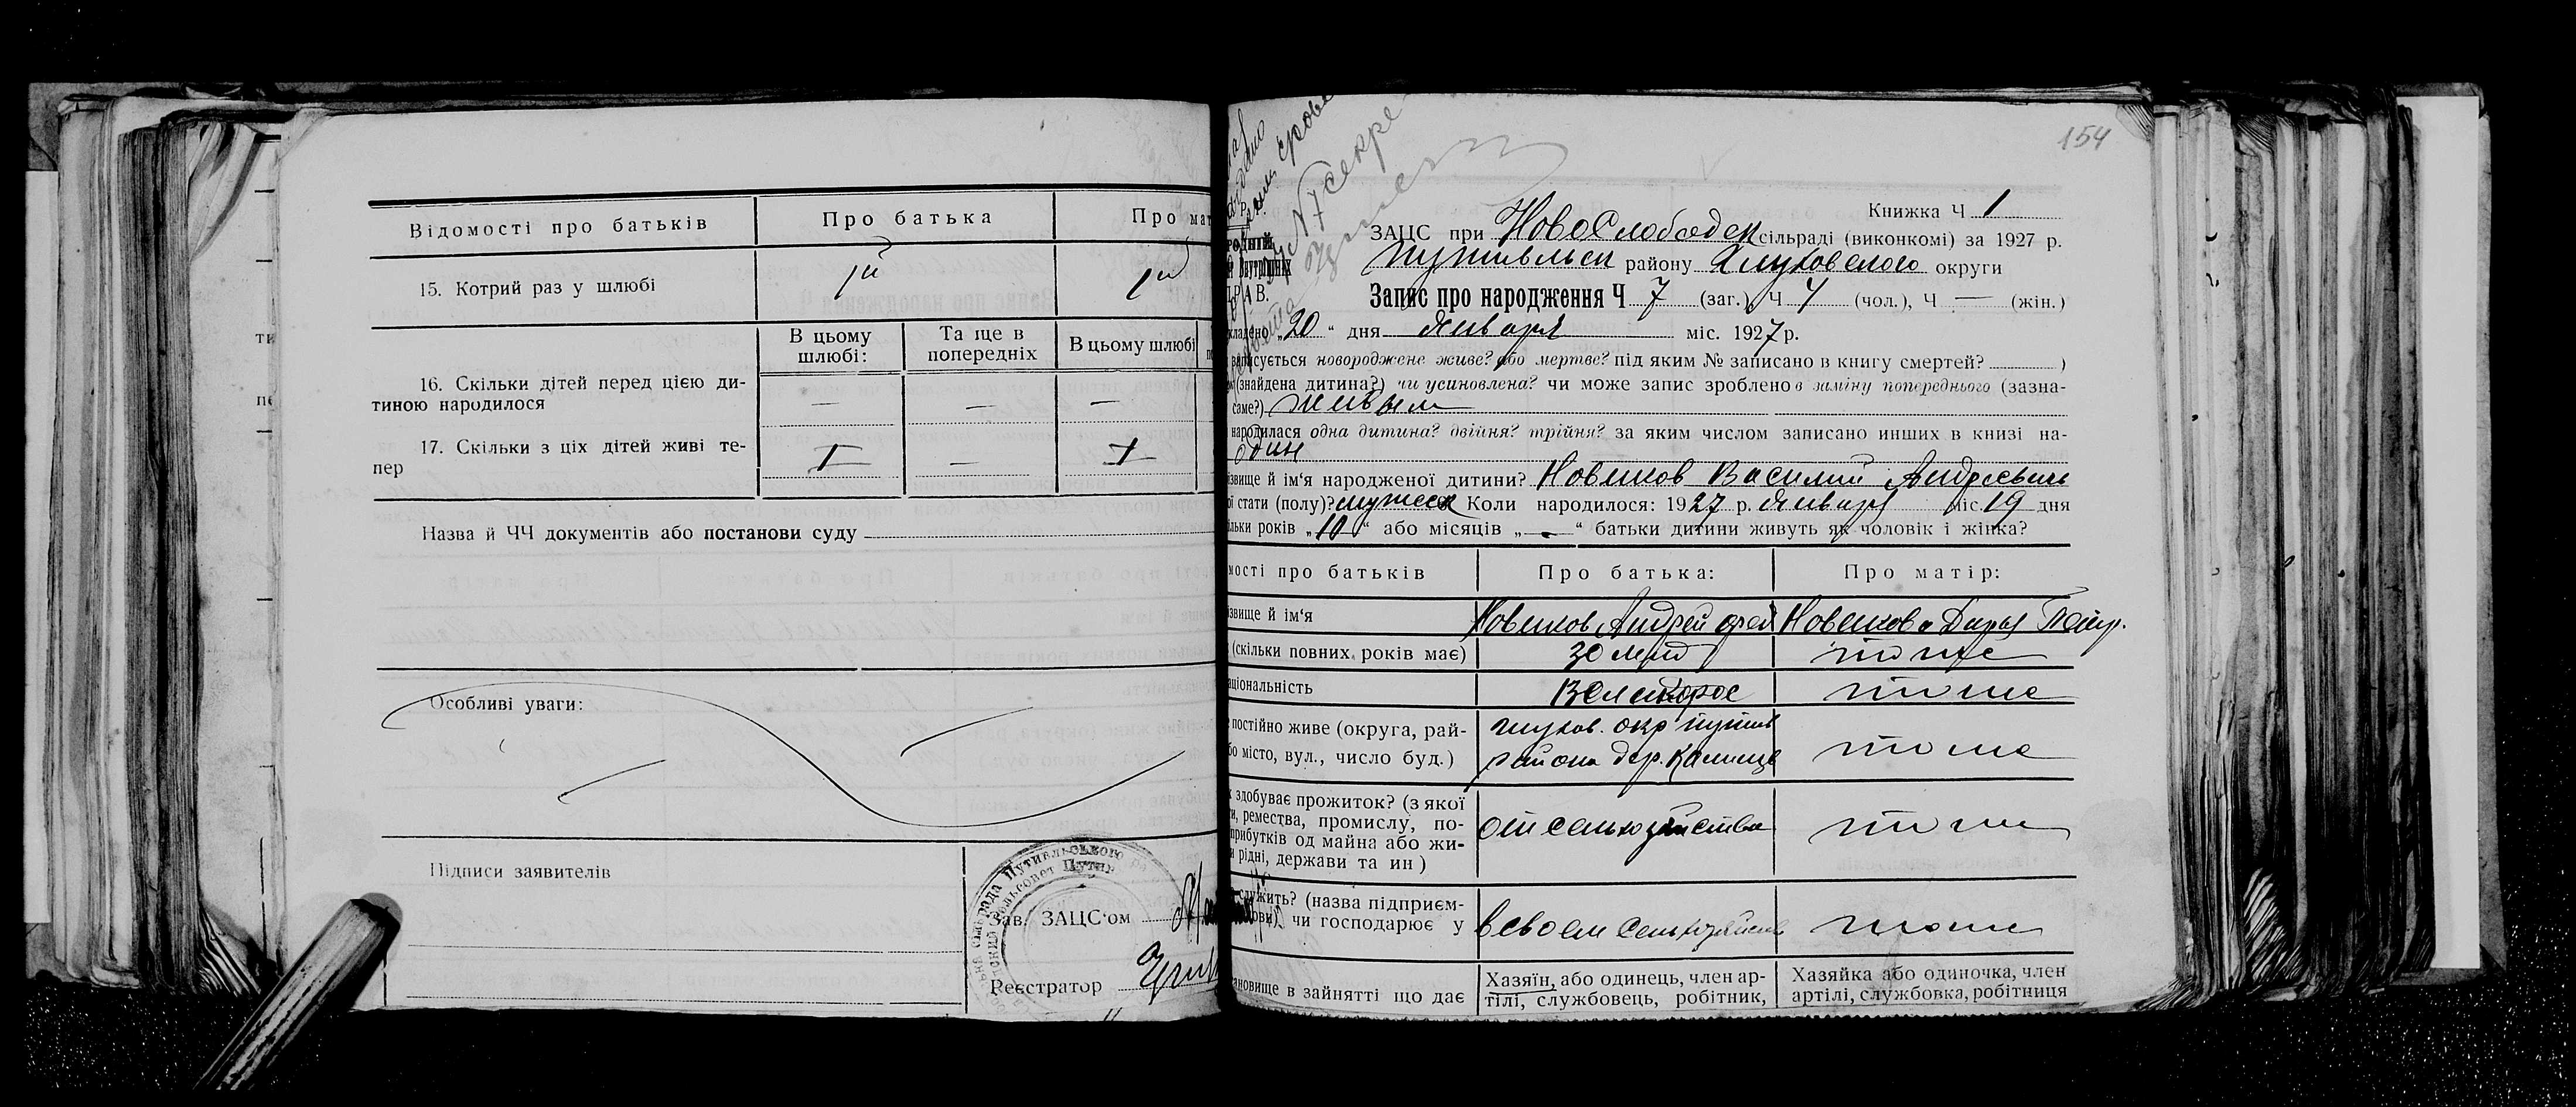 Відомості про батьків
Про батька
Про мат
15. Котрий раз у шлюбі
1й
1й
В цьому шлюбі:
Та ще в попередніх
В цьому шлюбі
16. Скільки дітей перед цією ди-
тиною народилося
—
—
—
17. Скільки з ціх дітей живі те-
пер
1
—
1
Назва й ЧЧ документів або постанови суду
Особливі уваги:
Підписи заявителів
Зав. ЗАЦС'ом
Реєстратор
154
Книжка Ч 1
ЗАЦС при НовоСлободск сільраді (виконкомі) за 1927 р.
Путивльск району Глуховского округи
Запис про народження Ч 7 (заг.), Ч 4 (чол.), Ч — (жін.)
кладено „20“ дня Января міс. 1927 р.
записується новороджене живе? або мертве? під яким № записано в книгу смертей? )
(знайдена дитина?) чи усиновлена? чи може запис зроблено в заміну попереднього (зазна-
саме?) живым
народилася одна дитина? двійня? трійня? за яким числом записано инших в книзі на-
один
ізвище й ім'я народженої дитини? Новиков Василий Андреевич
ої стати (полу)? мужск Коли народилося: 1927 р. Январ міс. 19 дня
ільки років „10“ або місяців „—“ батьки дитини живуть як чоловік і жінка?
мості про батьків
Про батька:
Про матір:
ізвище й ім'я
Новиков Андрей
Новикова Дарья Петр.
(скільки повних років має)
30 лет
тоже
аціональність
Великорос
тоже
постійно живе (округа, рай-
бо місто, вул., число буд.)
глухов. окр путив
района дер. Калище
тоже
к здобуває прожиток? (з якої
и, ремества, промислу, по-
прибутків од майна або жи-
и рідні, держави та ин)
от сельхозяйства
тоже
служить? (назва підприєм-
ови), чи господарює у
в своем сельхозяйств
тоже
ановище в зайнятті що дає
Хазяїн, або одинець, член ар-
тілі, службовець, робітник,
Хазяйка або одиночка, член
артілі, службовка, робітниця